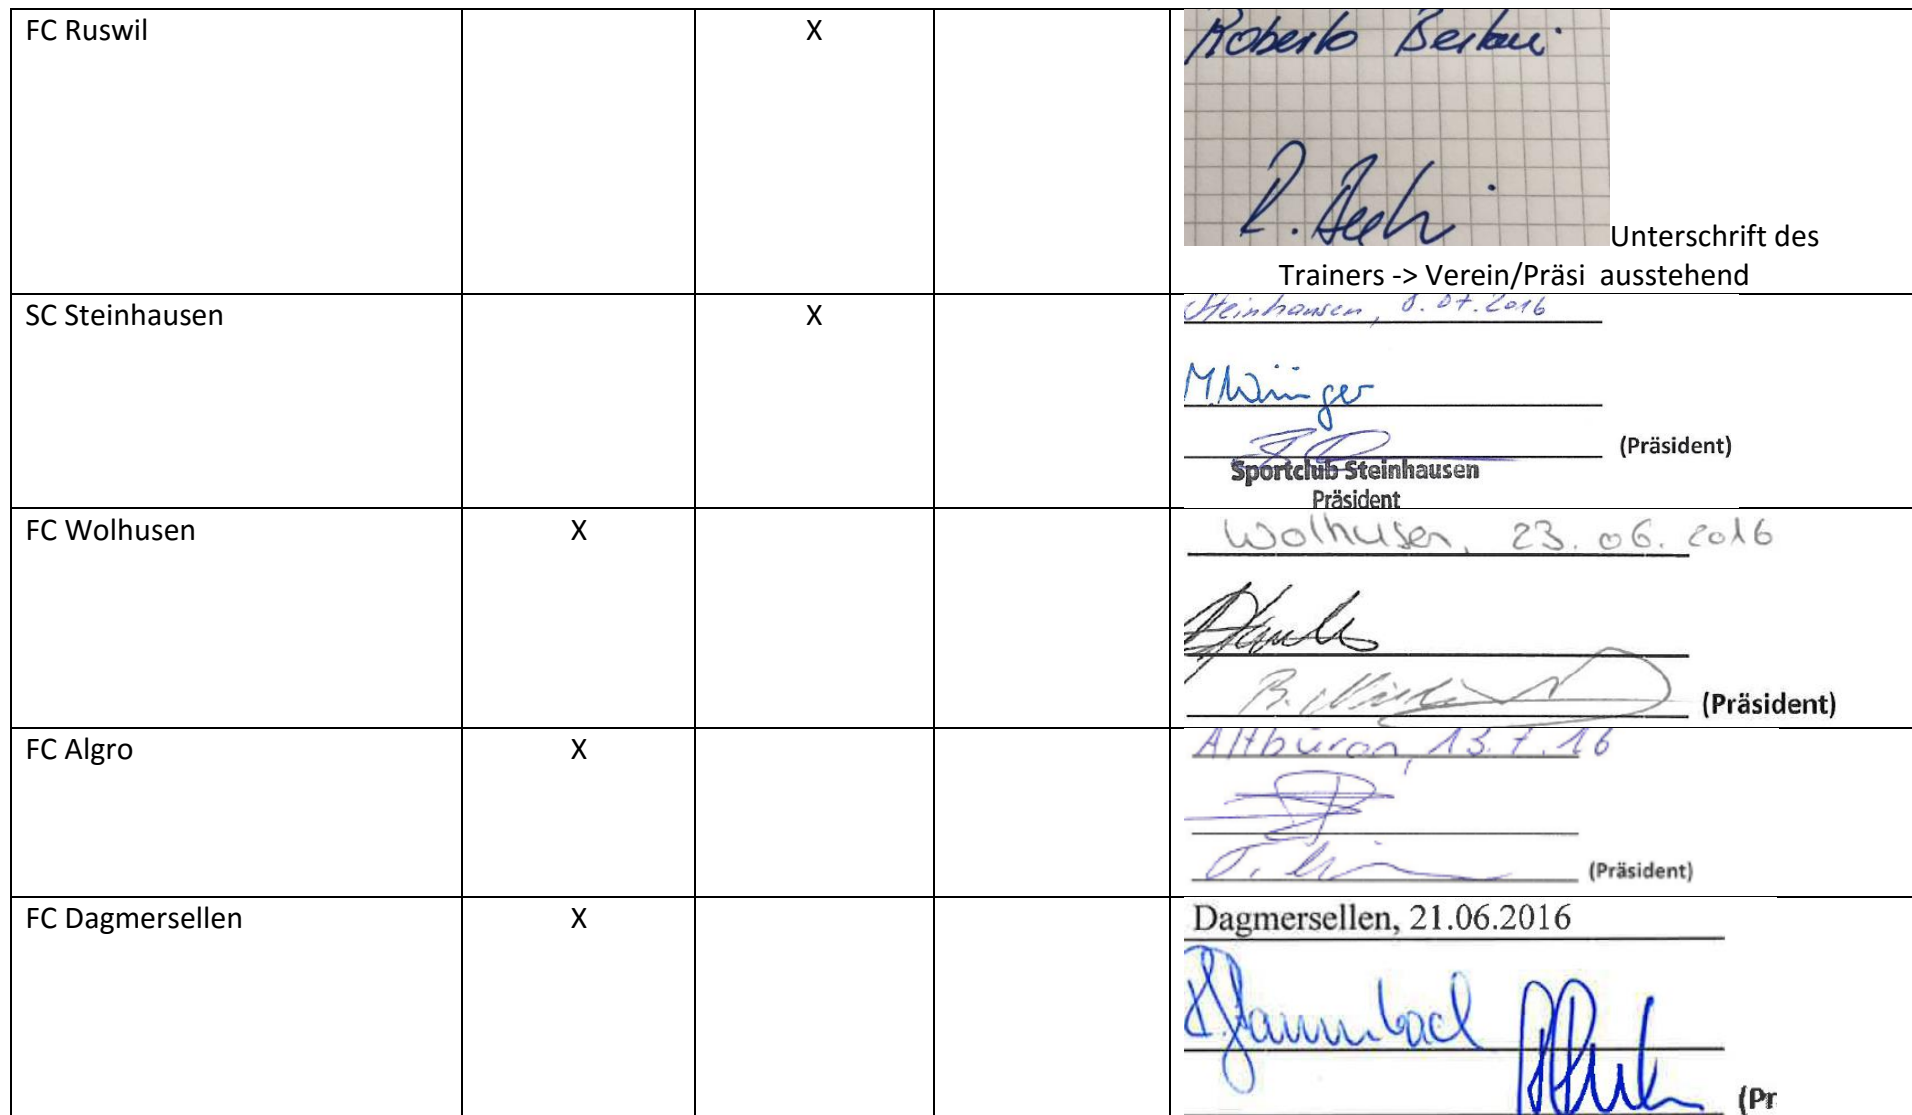 FC Ruswil X Roberto Bertoni
Unterschrift des
Trainers -> Verein/Präsi ausstehend
SC Steinhausen X Steinhausen, 8.07.2016
(Präsident)
Sportclub Steinhausen
Präsident
FC Wolhusen X Wolhusen, 23.06.2016
(Präsident)
FC Algro X Altbüron, 13.7.16
(Präsident)
FC Dagmersellen X Dagmersellen, 21.06.2016
(Pr